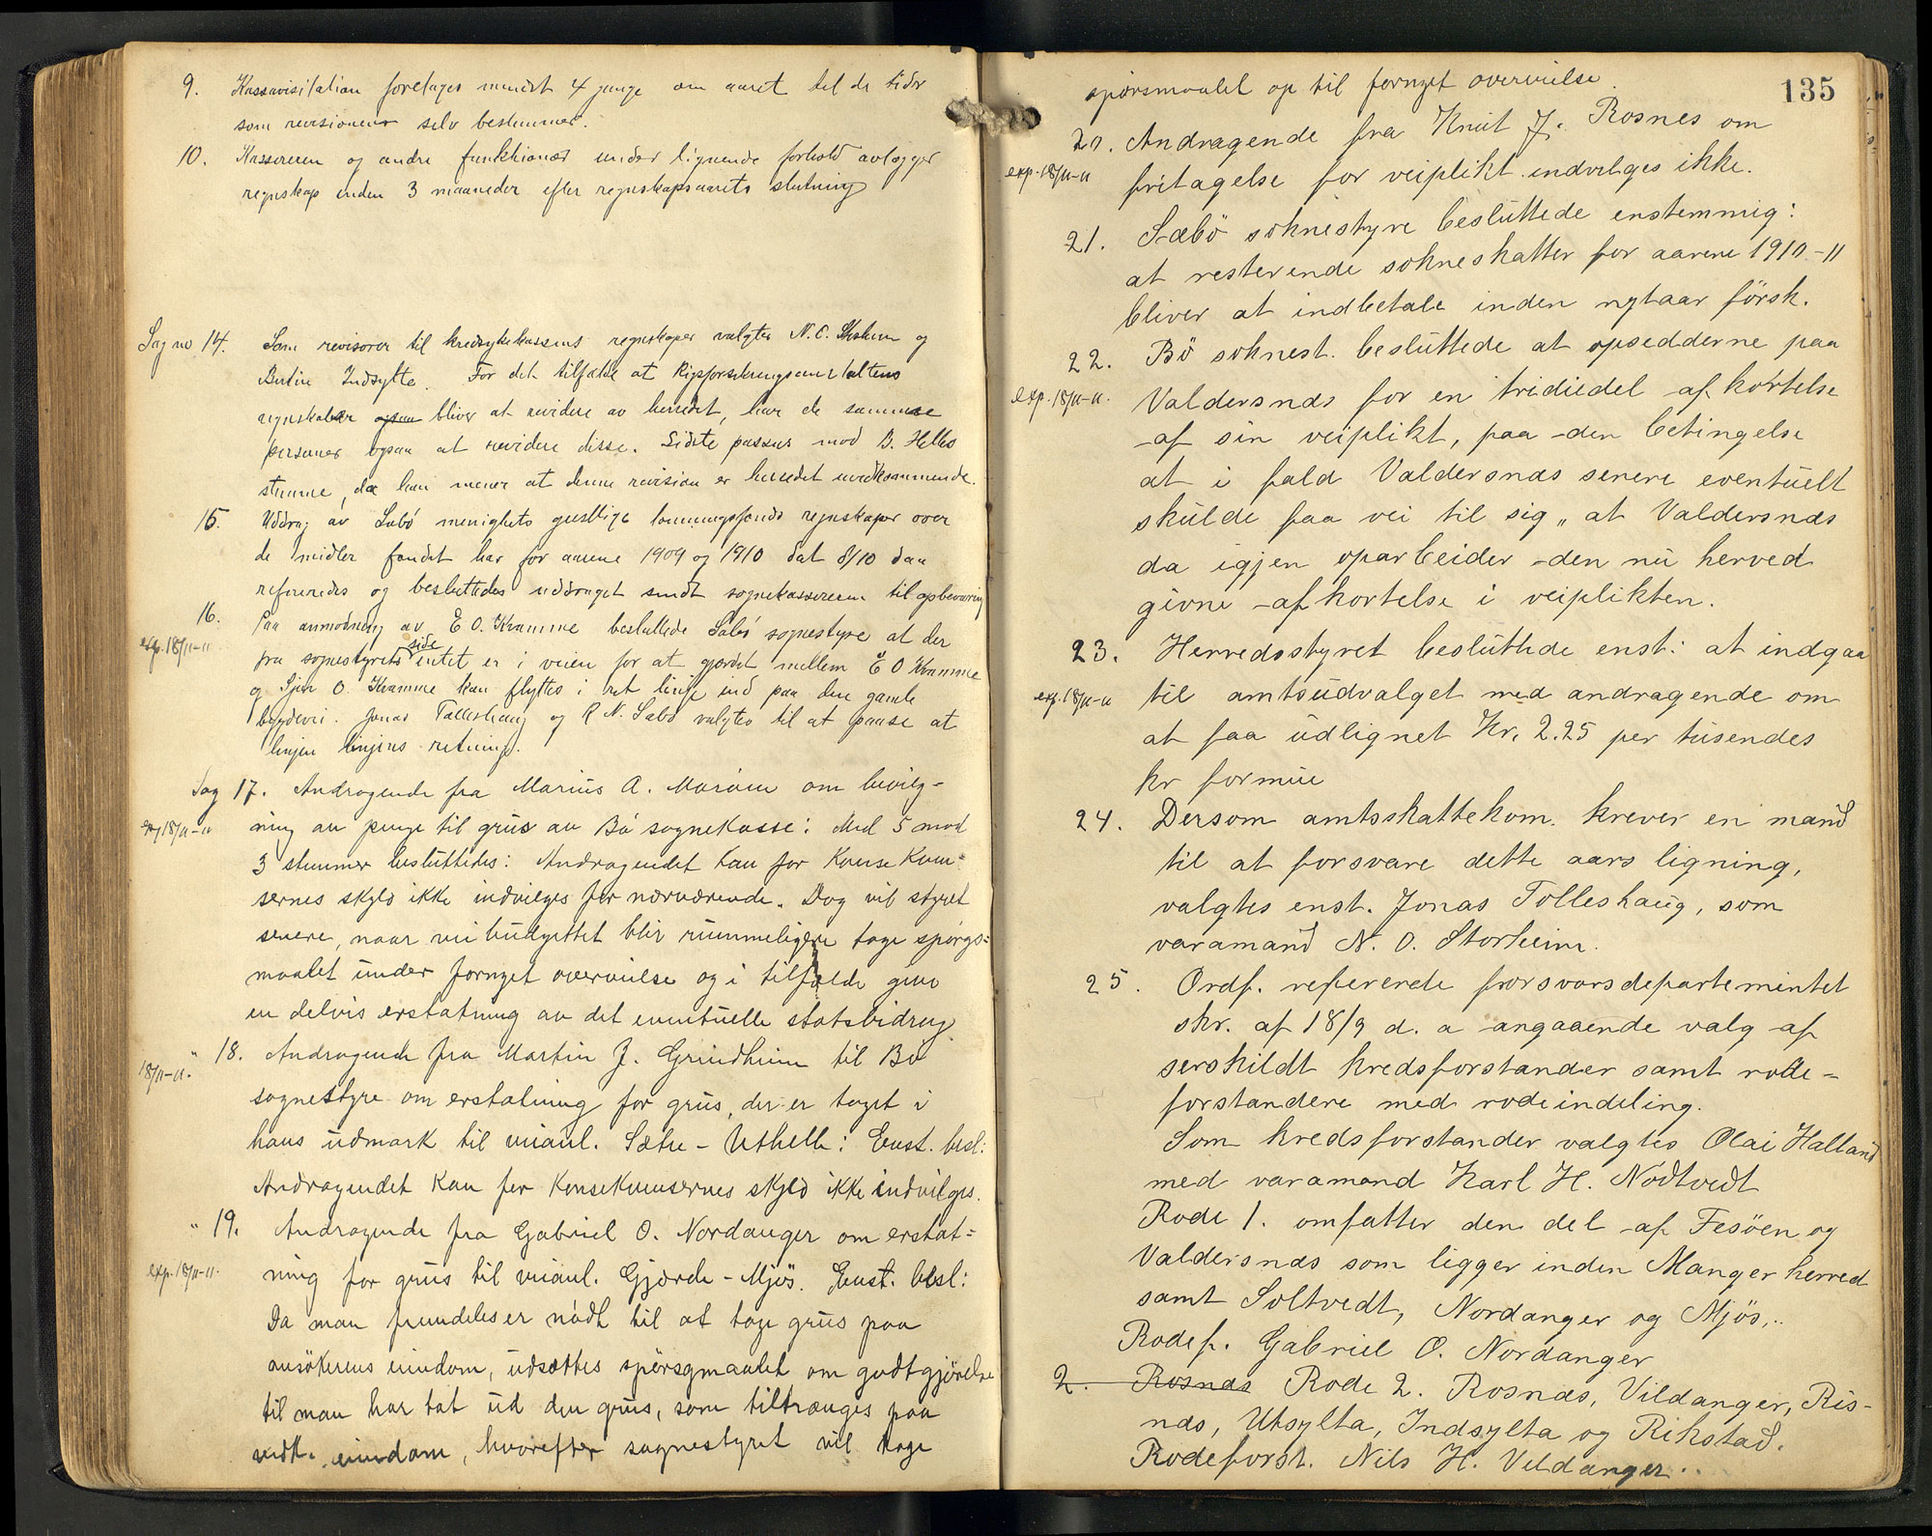 9. Kassavisitation foretages mindst 4 gange om aaret til de tider
som revisionen selv bestemmer.
10. Kassereren og andre funktionær under lignende forhold avlægger
regnskap inden 3 maaneder efter regnskapsaarets slutning
Sag no 14. Som revisorer til kredsykekassens regnskaper valgtes N. C. og
Bertin Indsylta. For det tilfælde at Rigsforsikringsanstaltens
regnskaber ogsaa bliver at revidere av herredet, har de samme
personer ogsaa at revidere disse. Sidste passus mod B. Helles
stemme, da han mener at denne revision er herredet uvedkommende.
15. Uddrag av Sæbö menighets geistlige lønningsfonds regnskaper over
de midler fondet har for aarene 1909 og 1910 dat 8/10 d aa
refereredes og besluttedes uddraget sendt sognekassereren til opbevaring
16. Paa anmodning av E O. Kvamme besluttede Sæbö sognestyre at der
exp. 18/11-11
fra sognestyrets side intet er i veien for at gjærdet mellem E O Kvamme
og O. Kvamme kan flyttes i ret linje ind paa den gamle
bygdevei. Jonas Tolleshaug og R N. Sæbö valgtes til at paase at
linjen linjens retning.
Sag 17. Andragende fra Marius A. Marøen om bevilg-
exp 18/11-11
ning av penge til grus av Bö sognekasse: Med 5 mod
3 stemmer besluttedes: Andragendet kan for Konse Kven-
sernes skyld ikke indvilges for nærværende. Dog vil styret
senere, naar veibudgettet blir rummeligere tage spörgs=
maalet under fornyet overveielse og i tilfælde give
en delvis erstatning av det eventuelle statsbidrag.
" 18. Andragende fra Martin J. Grindheim til Bö
18/11-11.
sognestyre om erstatning for grus, der er taget i
hans udmark til veianl. Sætre - Uthelle: Enst. besl:
Andragendet kan for Konsekvensernes skyld ikke indvilges.
" 19. Andragende fra Gabriel O. Nordanger om erstat=
exp. 18/11-11.
ning for grus til veianl. Gjærde - Mjös. Enst. besl:
Da man fremdeles er nödt til at tage grus paa
ansökerens eiendom, udsættes spörsgmaalet om godtgjörelse
til man har tat ud den grus, som tiltrænges paa
vedk. eiendom, hvorefter sognestyret vil tage
135
spörsmaalet op til fornyet overveielse.
20. Andragende fra Knut J. Rosnes om
exp. 18/11-11
fritagelse for veiplikt indvilges ikke.
21. Sæbö soknestyre besluttede enstemmig:
at resterende sokneskatter for aarene 1910-11
bliver at indbetale inden nytaar försk.
22. Bö soknest. besluttede at opsedderne paa
exp. 18/11-11.
Valdersnæs for en trediedel afkortelse
af sin veiplikt, paa den betingelse
at i fald Valdersnæs senere eventuelt
skulde faa vei til sig „ at Valdersnæs
da igjen oparbeider den nu herved
givne afkortelse i veiplikten.
23. Herredsstyret besluttede enst: at indgaa
exp. 18/11-11
til amtsudvalget med andragende om
at faa udlignet Kr. 2.25 per tusendes
kr formue
24. Dersom amtsskattekom. krever en mand
til at forsvare dette aars ligning,
valgtes enst. Jonas Tolleshaug, som
varamand N. O. Storheim.
25. Ordf. refererede forsvarsdepartementet
skr. af 18/9 d. a angaaende valg af
serskildt kredsforstander samt rode-
forstandere med rodeindeling.
Som kredsforstander valgtes Olai Halland
med varamand Karl H. Nodtvedt
Rode 1. omfatter den del af Fesöen og
Valdersnæs som ligger inden Manger herred
samt Soltvedt, Nordanger og Mjös,..
Rodef. Gabriel O. Nordanger
2. Rosnæs Rode 2. Rosnæs, Vildanger, Ris-
næs, Utsylta, Indsylta og Rikstad.
Rodeforst. Nils H. Vildanger.